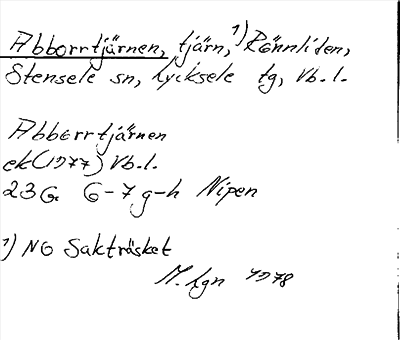 Abborrtjärnen, tjärn, 1) Rönnliden,
Stensele sn, Lycksele tg, Vb. l.
Abborrtjärnen
ek (1977) Vb. l.
23G 6-7 g-h Nipen
1) NO Sakträsket
M. Lgn 1978